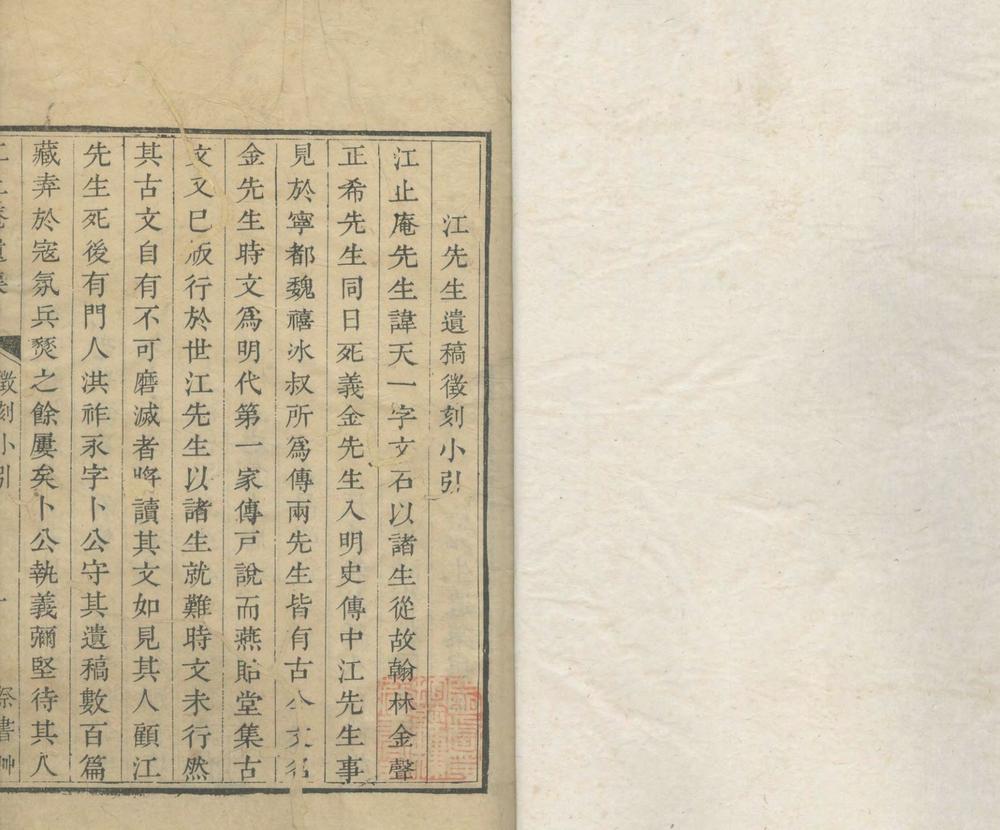 江先生遺稿徵刻小引
江止庵先生諱天一字文石以諸生從故翰林金聲
正希先生同日死義金先生入明史傳中江先生事
見於寧都魏禧冰叔所爲傳兩先生皆有古
金先生時文爲明代第一家傳戸說而燕貽堂集古
文又巳版行於世江先生以諸生就難時文未行然
其古文自有不可磨滅者哗讀其文如見其人顧江
先生死後有門人洪祚永字卜公守其遺稿數百篇
藏弆於寇氛兵燹之餘屢矣卜公執義彌堅待其人
徵刻小引
祭書艸